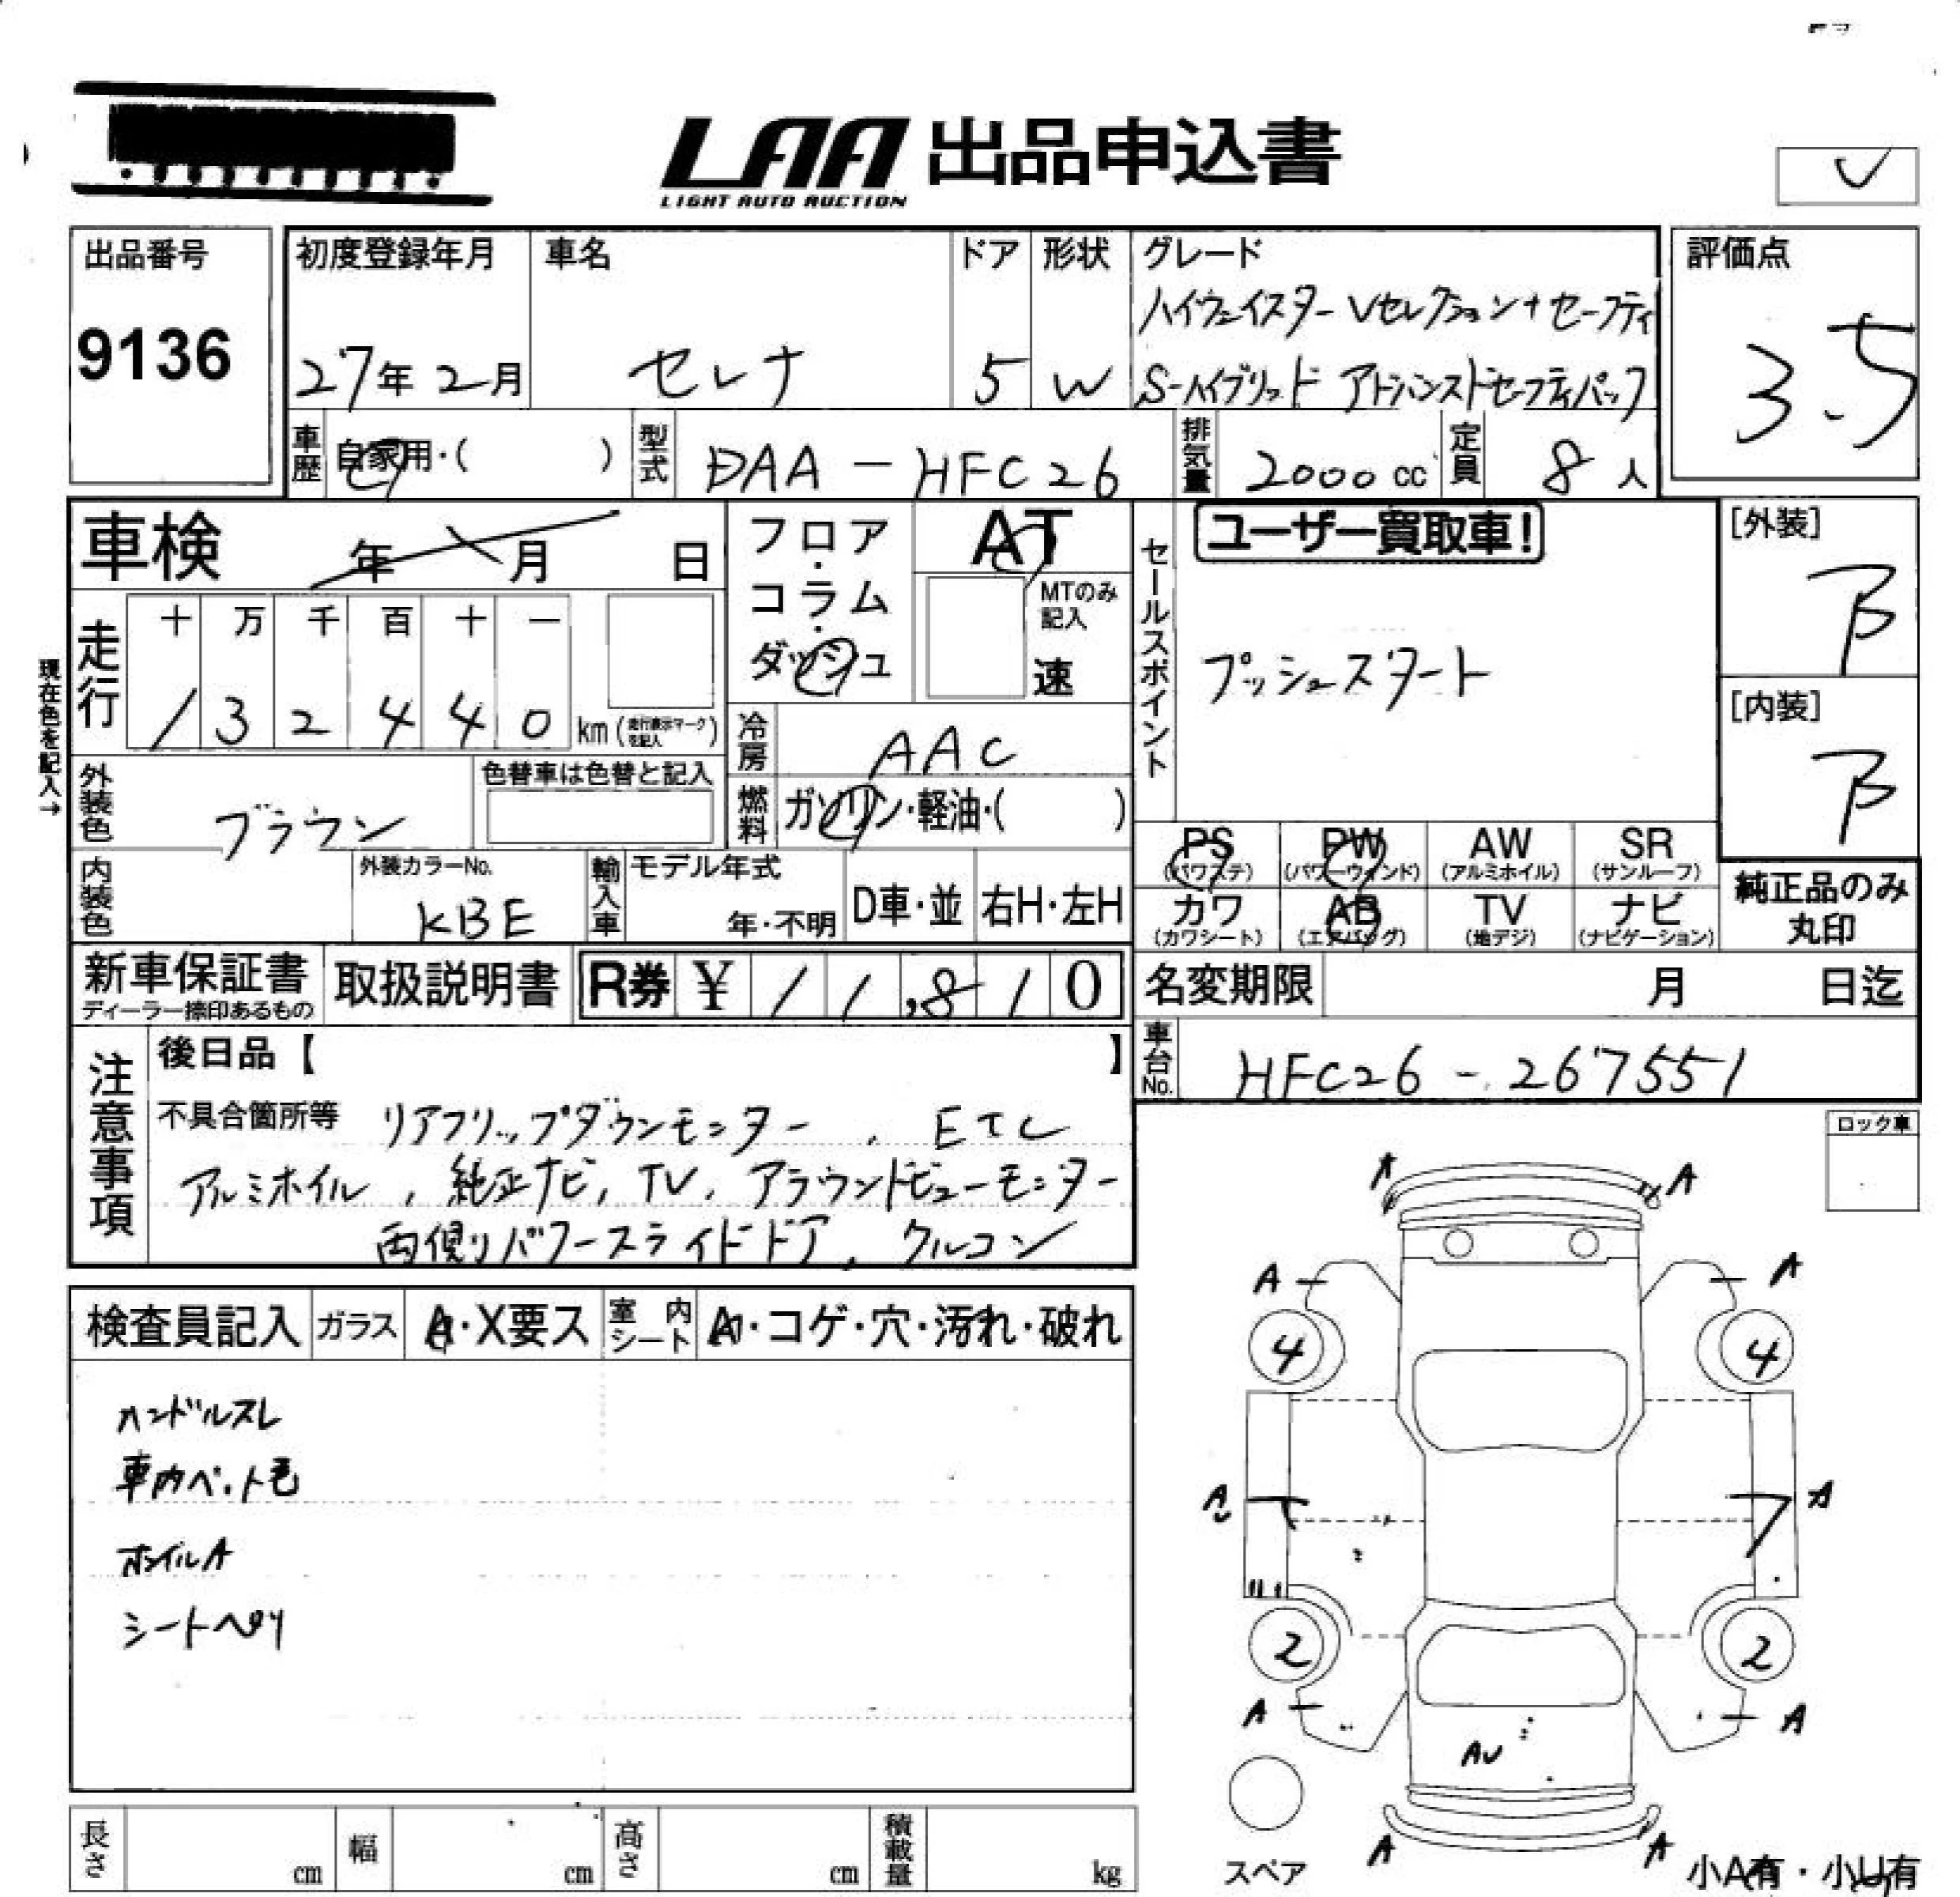 LAA 出品申込書
LIGHT AUTO AUCTION
出品番号
9136
初度登録年月
27年2月
車名
セレナ
ドア
5
形状
W
グレード
ハイウェイスター Vセレクション+セーフティ
S-ハイブリッド アドバンストセーフティパック
評価点
3.5
車歴
自家用・( )
型式
DAA-HFC26
排気量
2000cc
定員
8人
車検
年 月 日
フロア・コラム・ダッシュ
AT
MTのみ記入
速
セールスポイント
ユーザー買取車!
プッシュスタート
[外装]
B
[内装]
B
現在色を記入→
走行
十 万 千 百 十 一
1 3 2 4 4 0 km (走行表示マークを記入)
冷房
AAC
燃料
ガソリン・軽油・( )
外装色
ブラウン
色替車は色替と記入
内装色
外装カラーNo.
KBE
輸入車
モデル年式
年・不明
D車・並
右H・左H
PS (パワステ)
PW (パワーウインド)
AW (アルミホイル)
SR (サンルーフ)
カワ (カワシート)
AB (エアバッグ)
TV (地デジ)
ナビ (ナビゲーション)
純正品のみ丸印
新車保証書
ディーラー捺印あるもの
取扱説明書
R券 ¥11,810
名変期限
月 日迄
車台No.
HFC26-267551
注意事項
後日品【 】
不具合箇所等 リアフリップダウンモニター, ETC
アルミホイル, 純正ナビ, TV, アラウンドビューモニター
両側パワースライドドア, クルコン
ロック車
検査員記入
ガラス
A・X要ス
室内シート
A・コゲ・穴・汚れ・破れ
ハンドルスレ
車内ペット毛
ホイルA
シートヘタリ
A A
A A
4 4
A
2 2
A A
AU
A A
スペア
小A有・小U有
長さ cm
幅 cm
高さ cm
積載量 kg